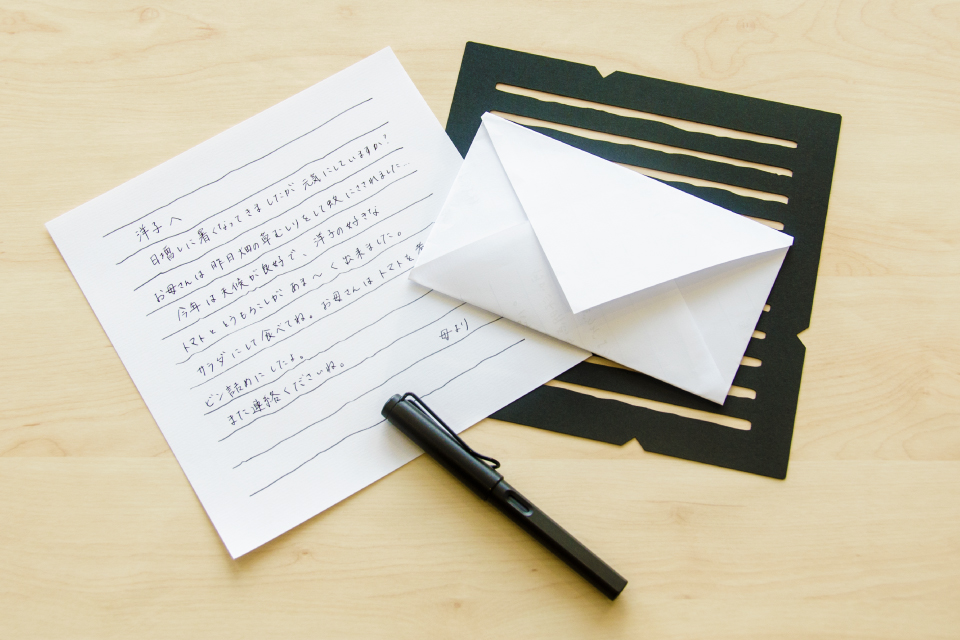 洋子へ
日増しに暑くなってきましたが元気にしていますか?
お母さんは昨日畑の草むしりをして蚊にさされました…
今年は天候が良好で、洋子の好きな
トマトととうもろこしがあま〜く出来ました。
サラダにして食べてね。お母さんはトマトを
ビン詰めにしたよ。
また連絡くださいね。
母より